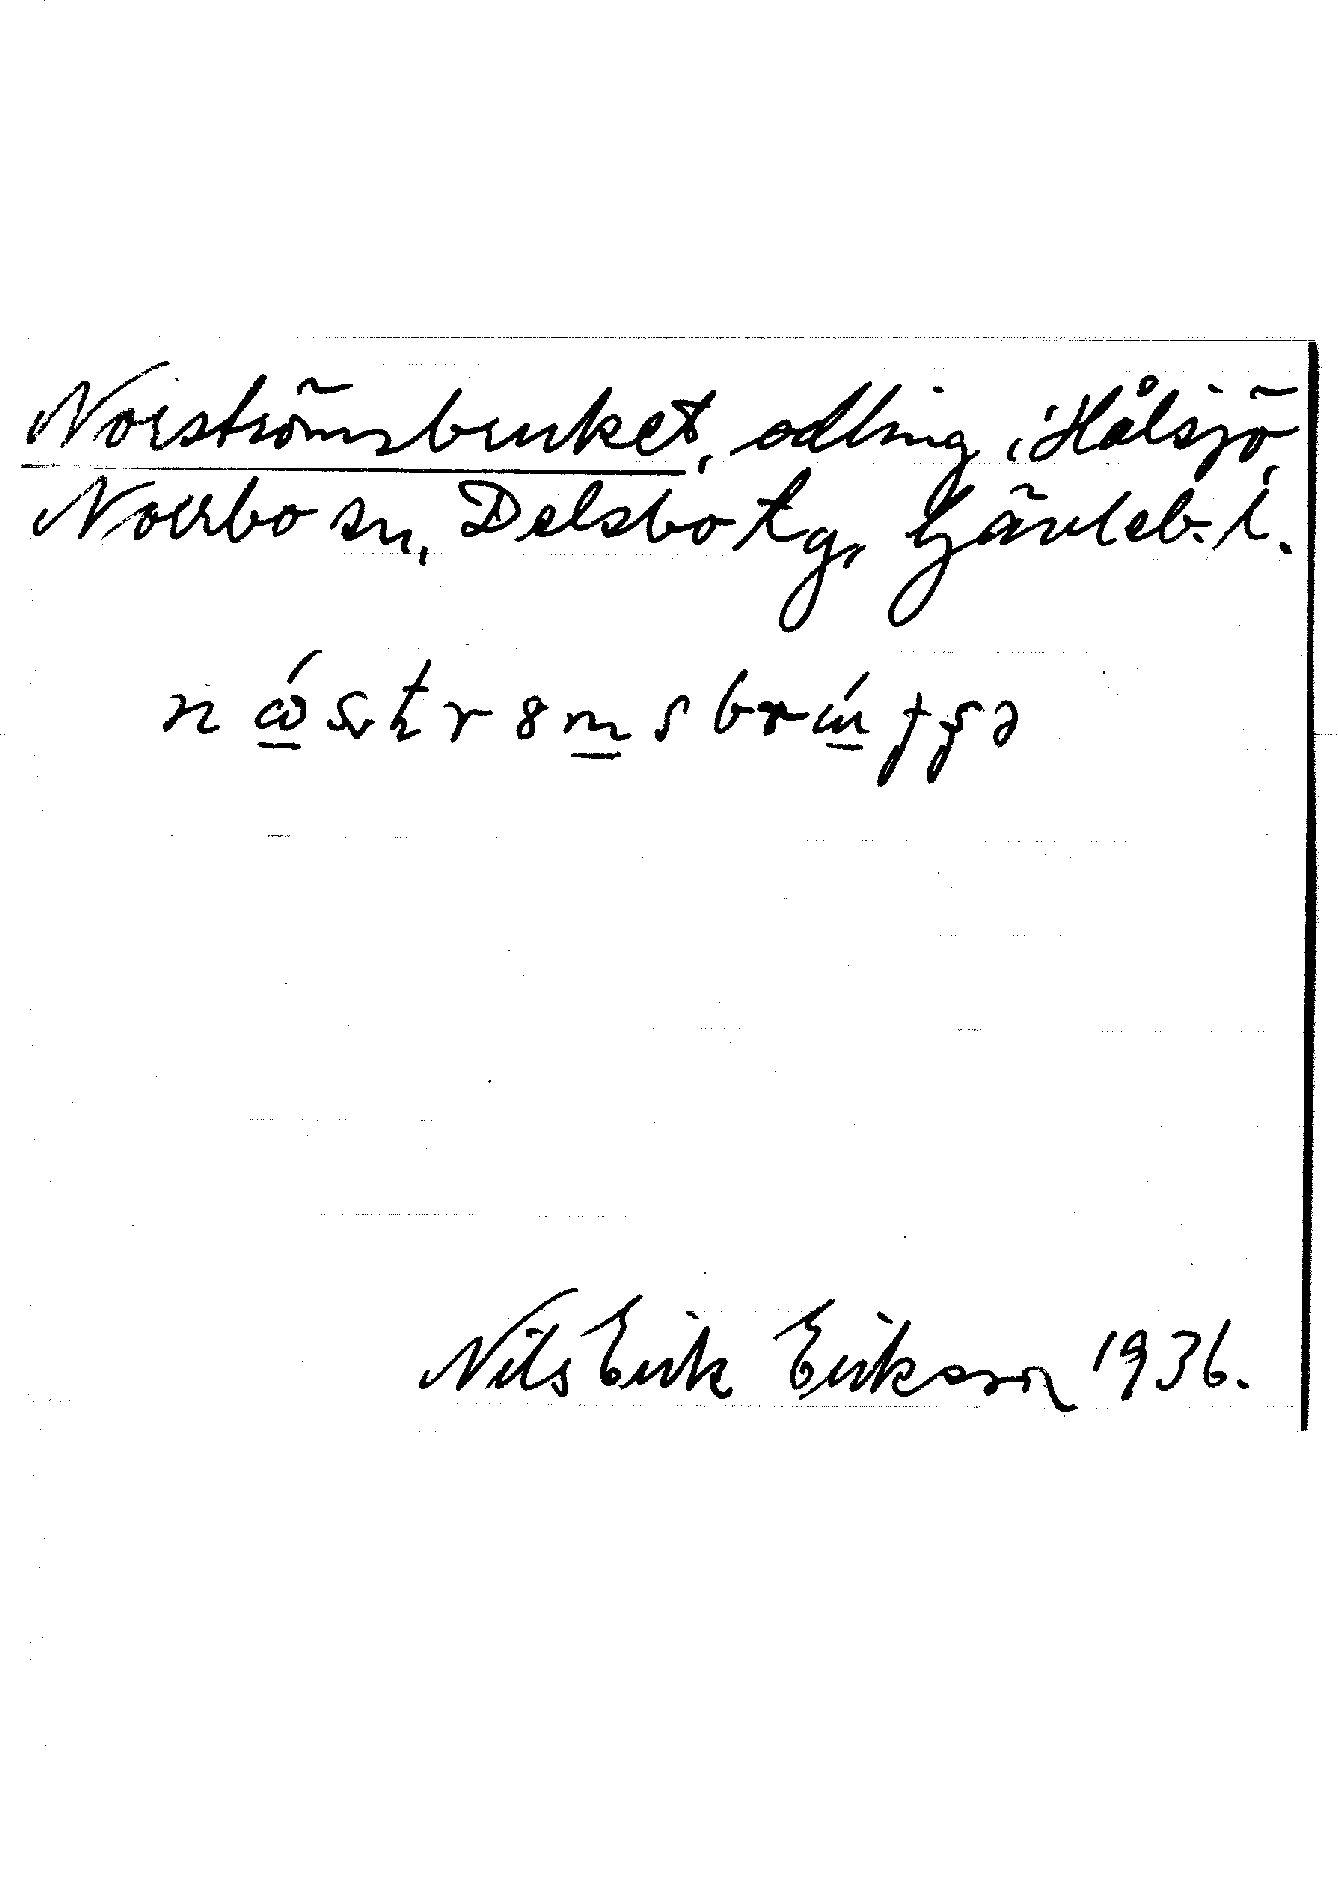 Norströmsbruket, odling i Hålsjö,
Norrbo sn, Delsbo tg, Gävleb. l.
Nils Erik Eriksson 1936.